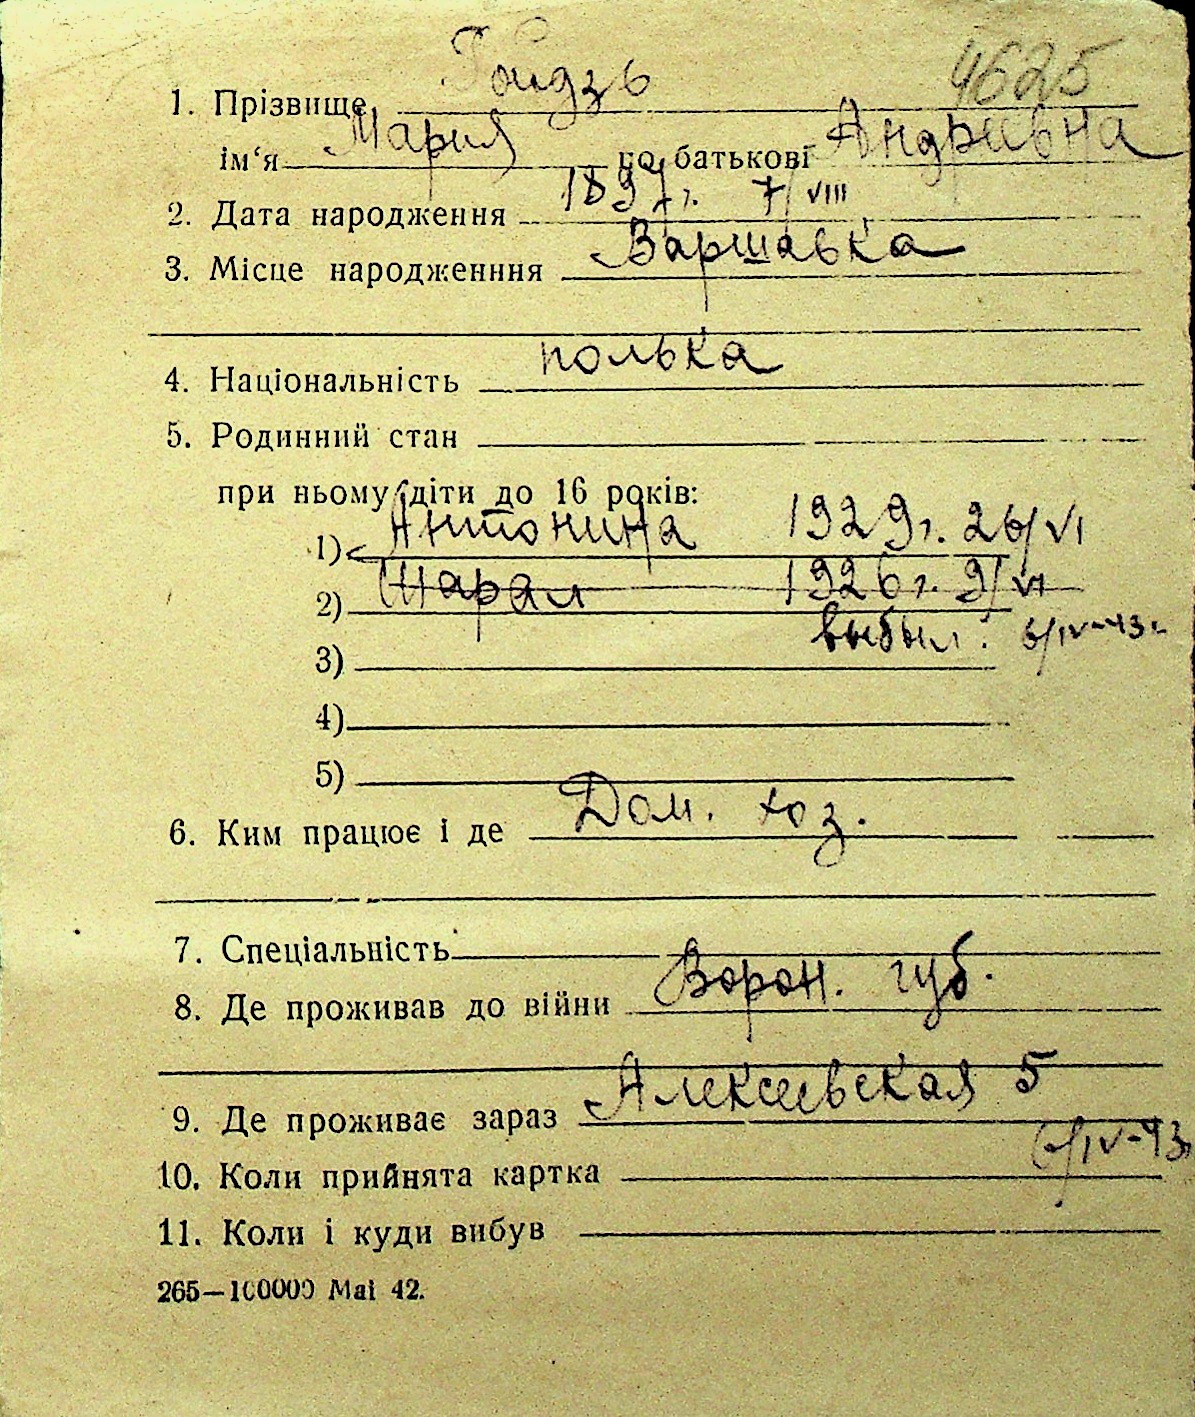 4625
1. Прізвище Гоидзь
ім‘я Мария по батькові Андреевна
2. Дата народження 1897 г. 7/VIII
3. Місце народженння Варшавка
4. Національність полька
5. Родинний стан
при ньому діти до 16 років:
1) Антонина 1929 г. 26/VI
2) 1926 г. 9/VI
выбыл. 6/IV-43 г.
3)
4)
5)
6. Ким працює і де Дом. хоз.
7. Спеціальність
8. Де проживав до війни Ворон. губ.
9. Де проживає зараз Алексеевская 5
10. Коли прийнята картка 6/IV-43
11. Коли і куди вибув
265—100000 Mai 42.